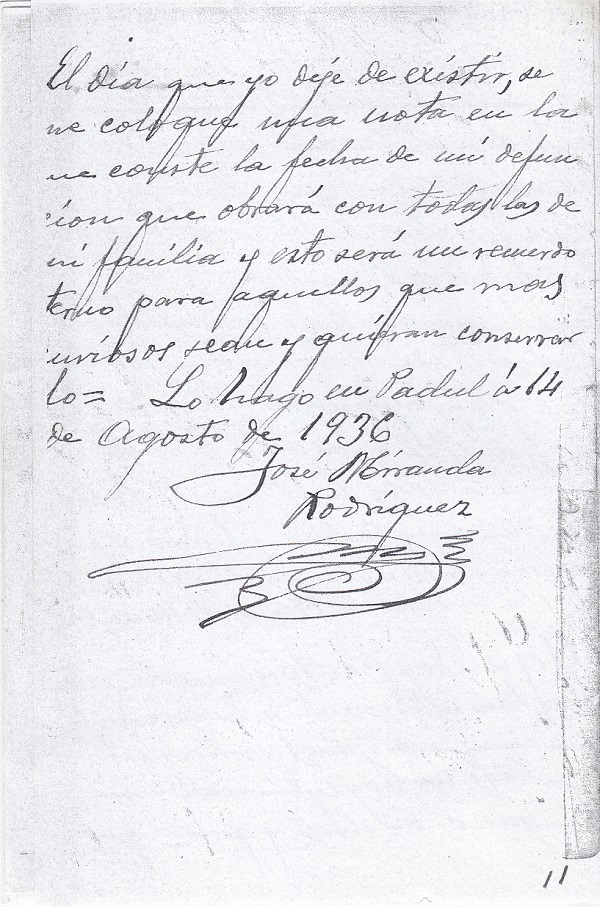 El día que yo deje de existir, se
me coloque una nota en la
que conste la fecha de mi defun
cion que obrará con todas las de
mi familia y esto será un recuerdo
terno para aquellos que mas
uriosos sean y quieran conservar
lo= Lo hago en Padul á 14
de Agosto de 1936
José Miranda
Rodríguez
11